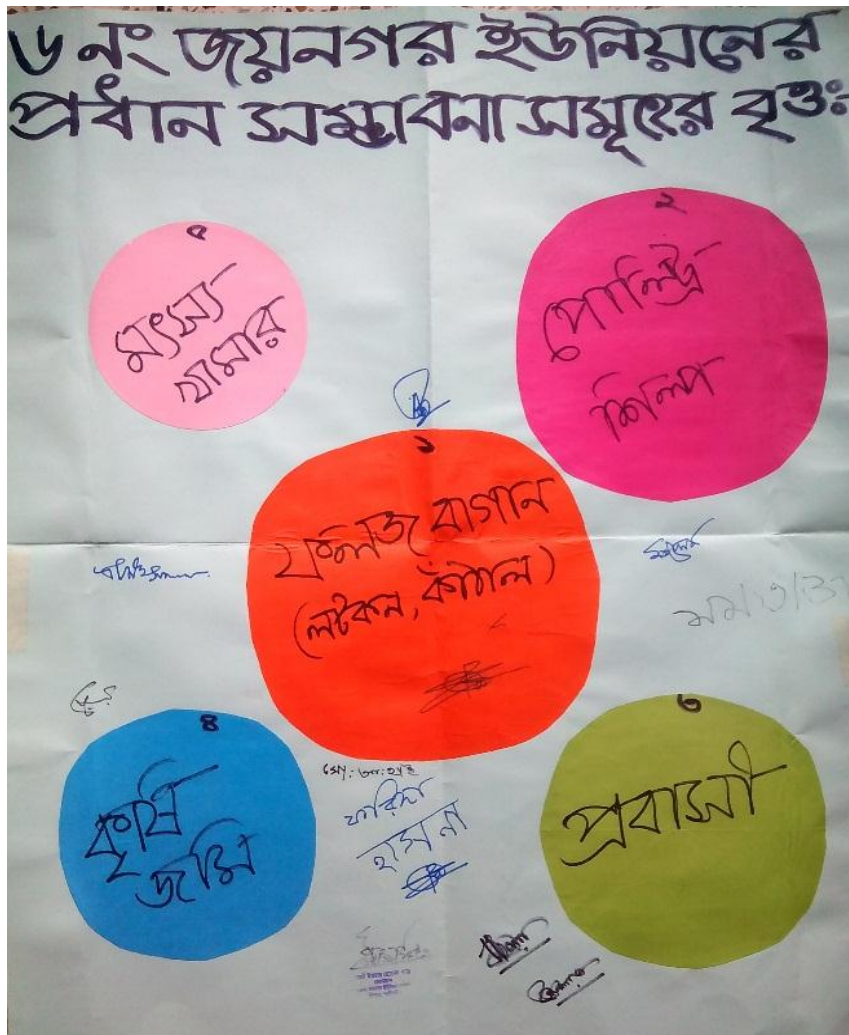 ৬ নং জয়নগর ইউনিয়নের
প্রধান সম্ভাবনা সমূহের বৃত্তঃ
৫
মৎস্য
খামার
২
পোল্ট্রি
শিল্প
১
ফলজ বাগান
(লটকন, কাঁঠাল)
মমতাজ
৪
কৃষি
জমি
৩
প্রবাসী
মো: আ: হাই
ফরিদা
হাসনা